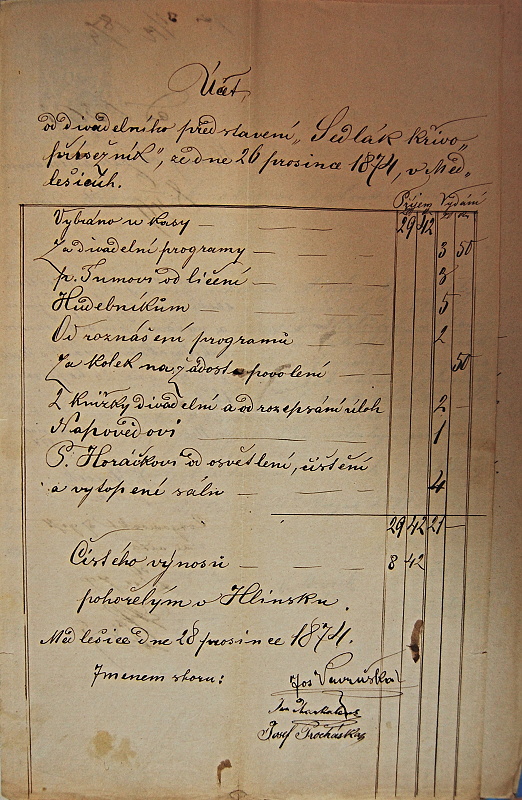 Účet,
od divadelního představení „Sedlák křivo„
přísežník", ze dne 26 prosince 1874, v Med„
lešicích.
Příjem Vydání
Vybráno u kasy — 29 42
Za divadelní programy — 3 50
p. Tůmovi od líčení — 3
Hudebníkům — 5
Od roznášení programů 2
Za kolek na žádost o povolení — 50
2 knížky divadelní a od rozepsání úloh 2 —
Napovědovi 1
P. Horáčkovi od osvětlení, čištění
a vytopení sálu — 4
29 42 21 —
Čistého výnosu — 8 42
pohořelým v Hlinsku.
Medlešice dne 28 prosince 1874.
Jmenem sboru:
Jos Vavruška
Josef Procházka